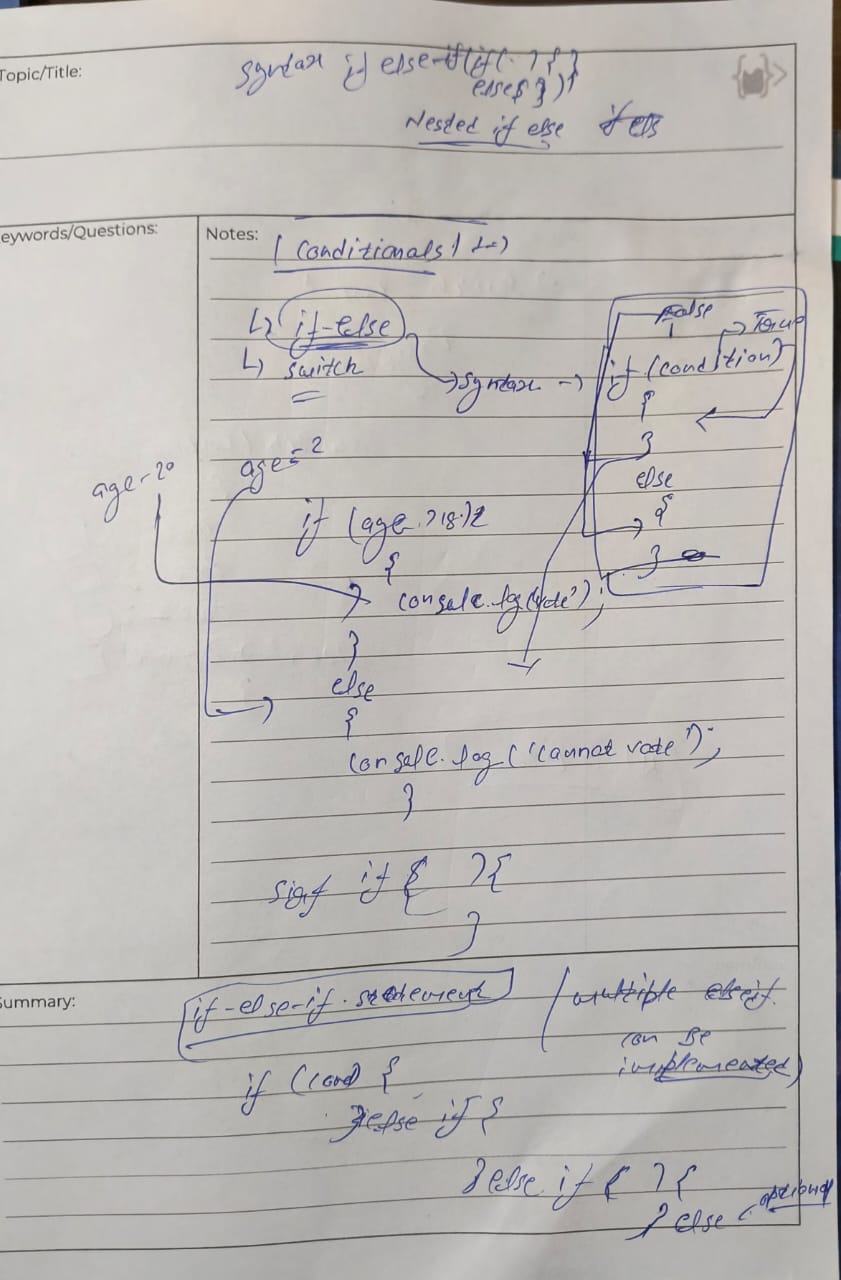 Topic/Title:
syntax if else-if(if( ) { }
else{ })}
Nested if else
eywords/Questions:
Notes:
(Conditionals)
↳ if-else
↳ switch
→ syntax →
False
→ True
if (condition)
{
}
else
{
}
age-20
age=2
if (age >18)
{
console.log('vote');
}
else
{
console.log('cannot vote');
}
if ( ){
}
Summary:
if-else-if statement
(multiple else if
can be
implemented)
if (cond {
}else if {
}else if ( ) {
} else optional